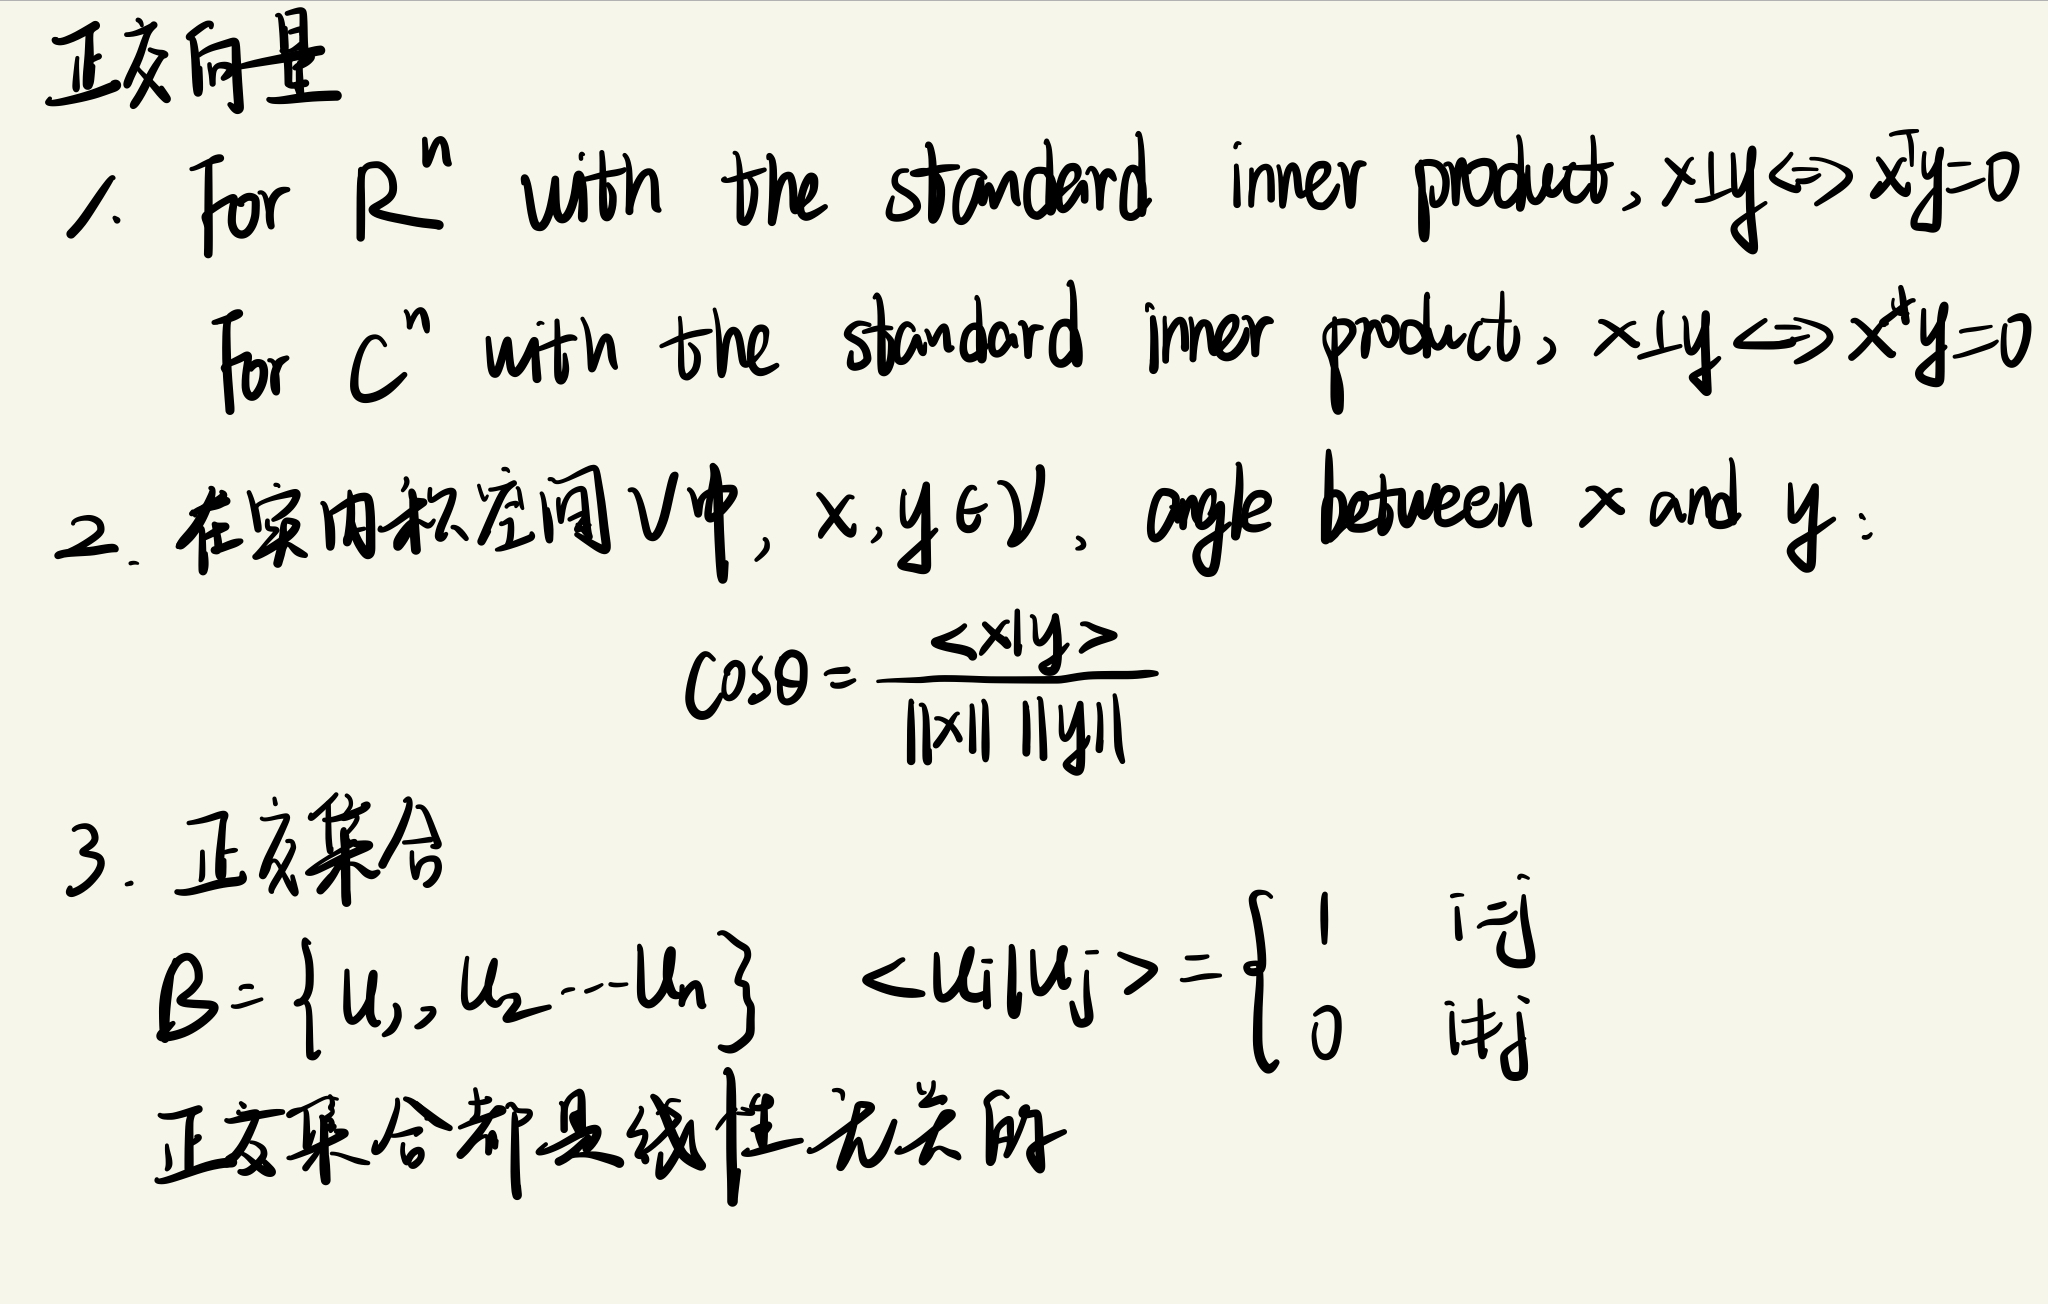 正交向量
1. For R^n with the standard inner product, x⊥y <=> x^T y=0
For C^n with the standard inner product, x⊥y <=> x^* y=0
2. 在实内积空间V中, x, y ∈ V, angle between x and y:
cosθ = <x|y> / ||x|| ||y||
3. 正交集合
B = {u1, u2 ... un} <ui|uj> = { 1 i=j
0 i≠j
正交集合都是线性无关的